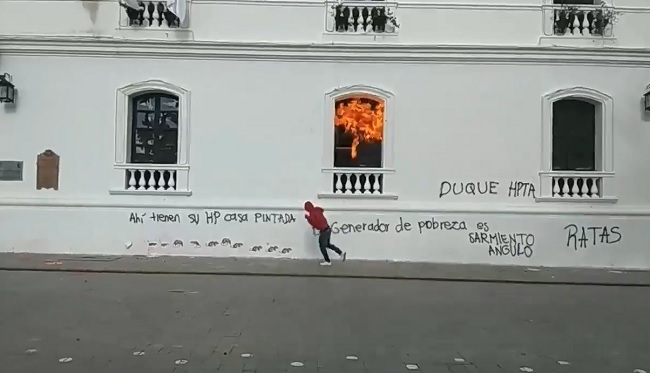 DUQUE HPTA
Ahí tienen su HP casa PINTADA
Generador de pobreza es
SARMIENTO
ANGULO
RATAS